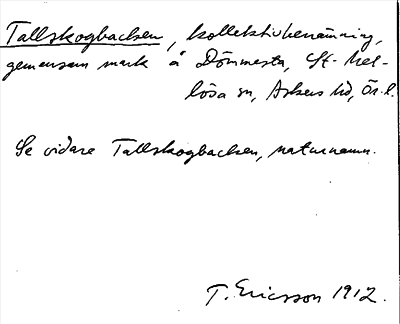 Tallskogbacken, kollektivbenämning,
gemensam mark å Dömmesta, St. Mel-
lösa sn, Askers hd, Ör. l.
Se vidare Tallskogbacken, naturnamn.
T. Ericsson 1912.